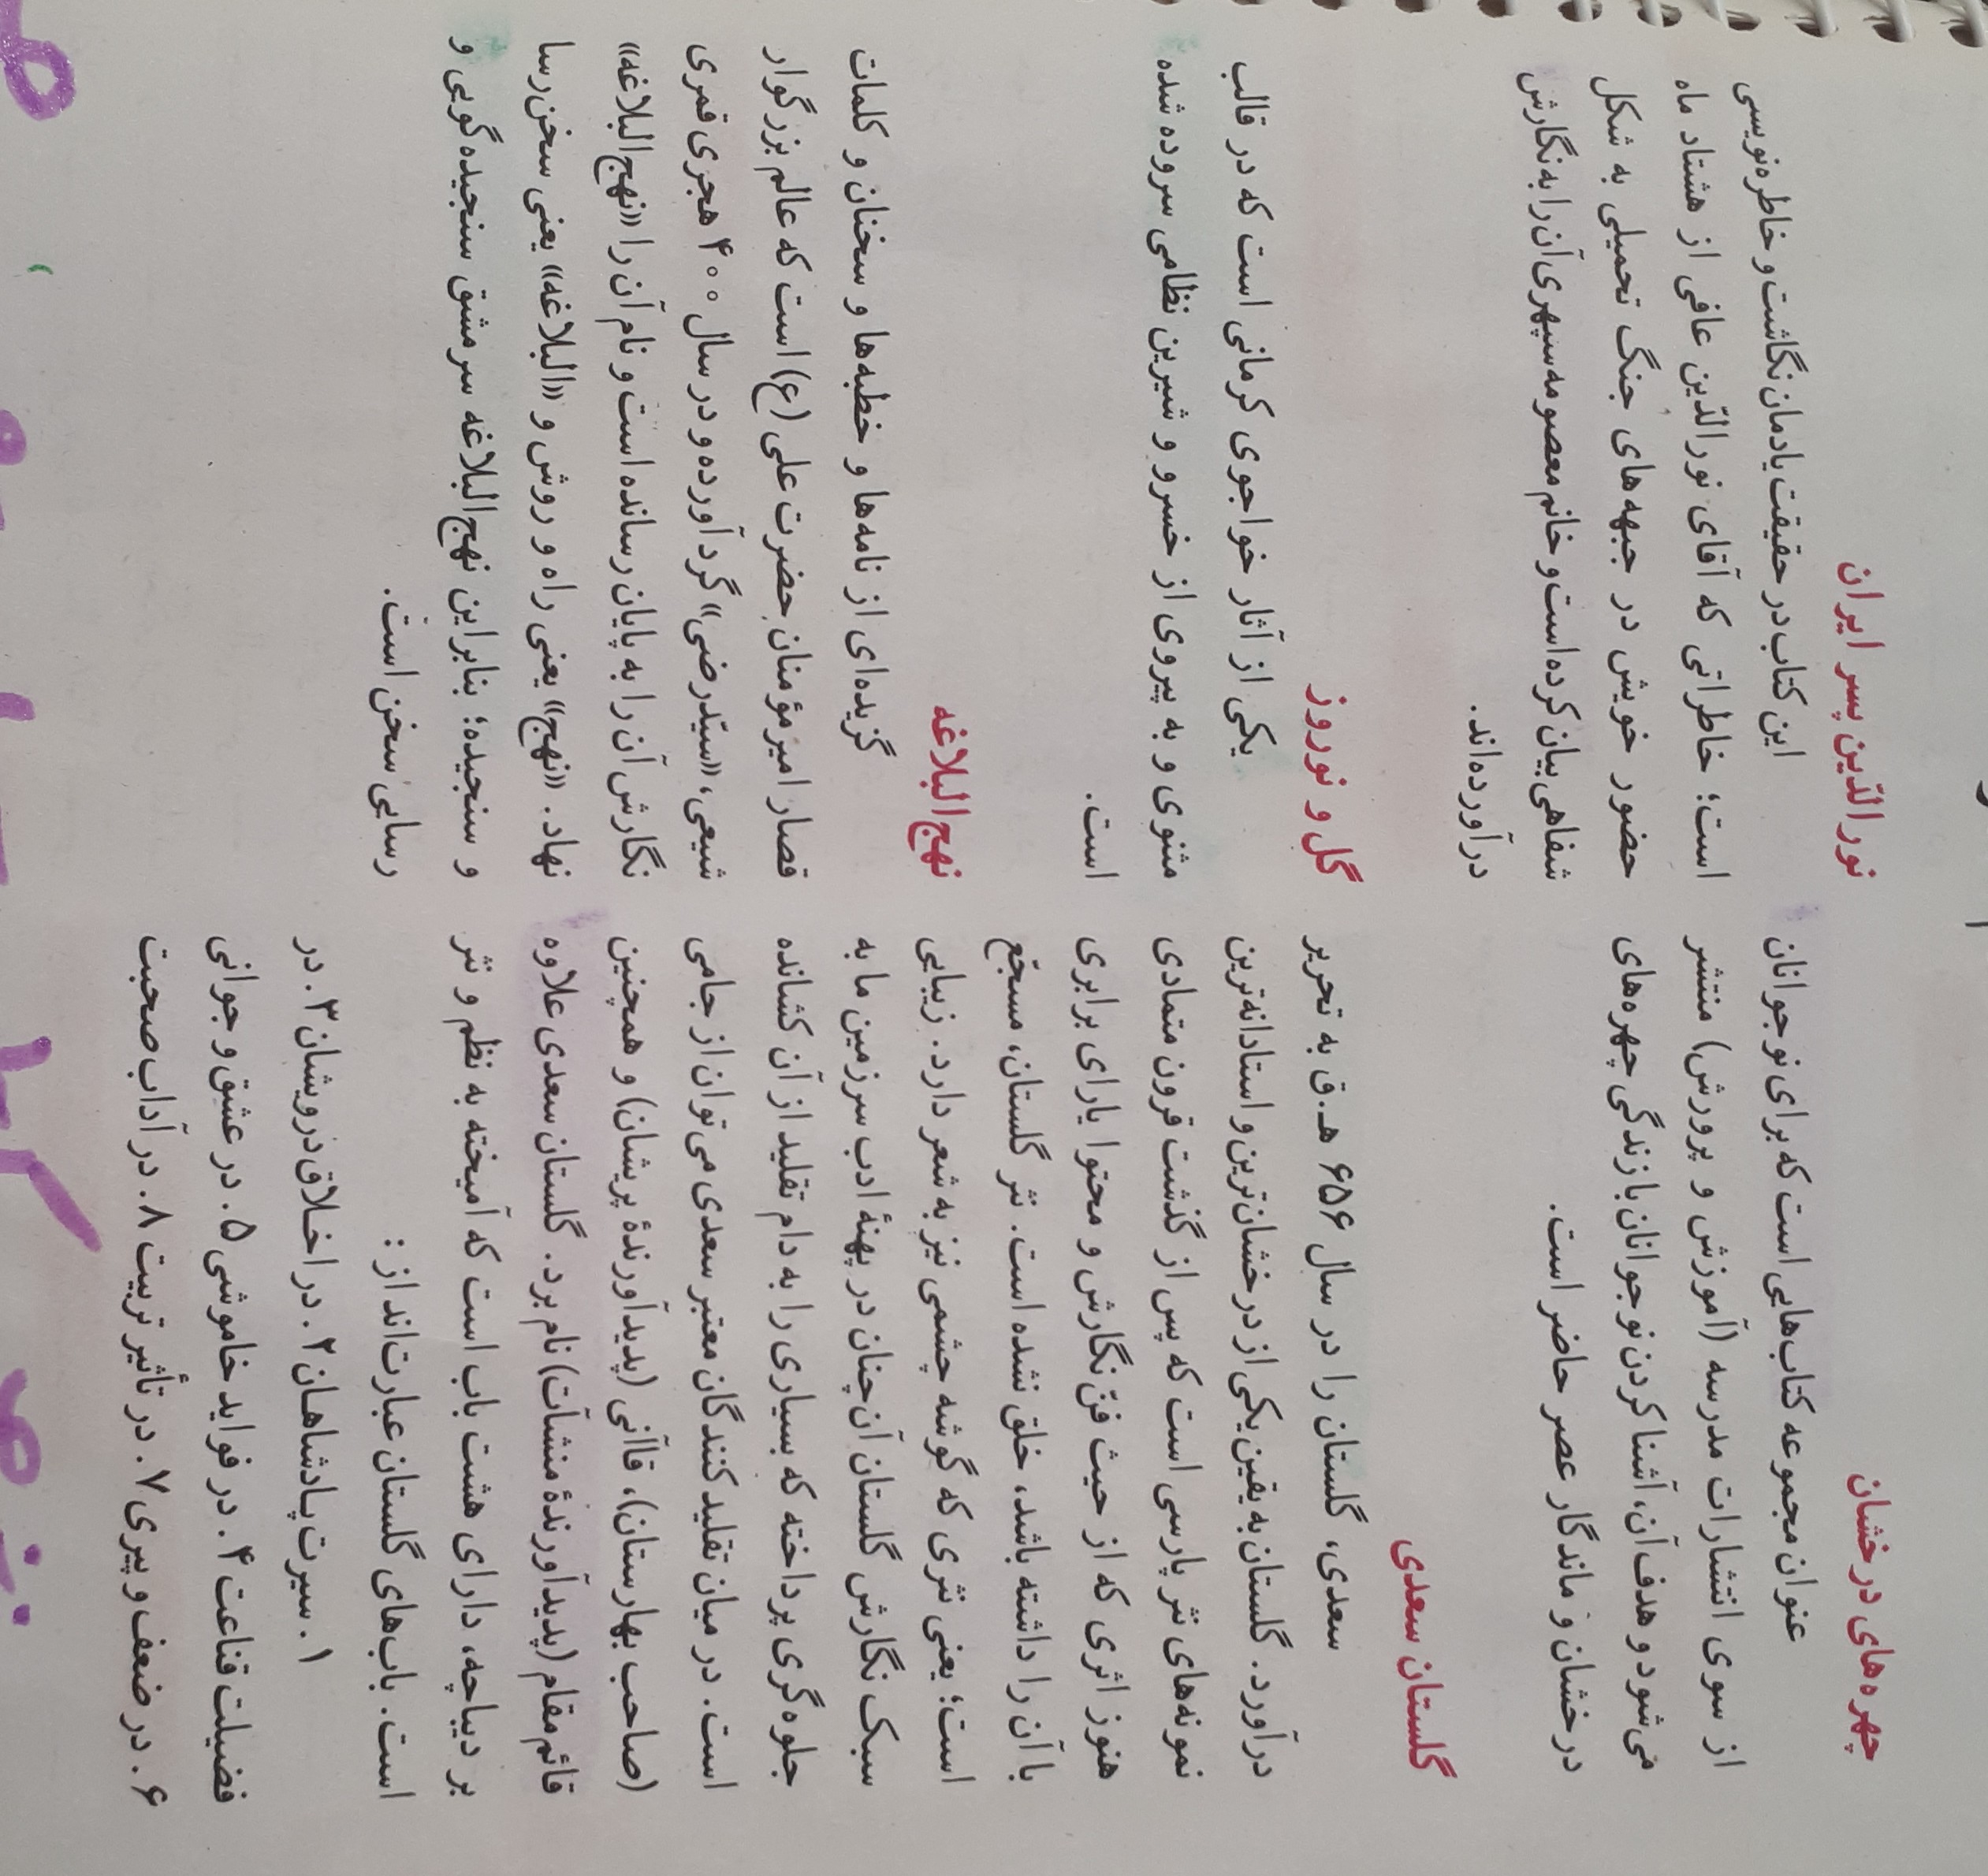 چهره‌های درخشان
عنوان مجموعه کتاب‌هایی است که برای نوجوانان
از سوی انتشارات مدرسه (آموزش و پرورش) منتشر
می‌شود و هدف آن، آشنا کردن نوجوانان با زندگی چهره‌های
درخشان و ماندگار عصر حاضر است.
گلستان سعدی
سعدی، گلستان را در سال ۶۵۶ هـ.ق به تحریر
درآورد. گلستان به یقین یکی از درخشان‌ترین و استادانه‌ترین
نمونه‌های نثر پارسی است که پس از گذشت قرون متمادی
هنوز اثری که از حیث فنّ نگارش و محتوا یارای برابری
با آن را داشته باشد، خلق نشده است. نثر گلستان، مسجّع
است؛ یعنی نثری که گوشه چشمی نیز به شعر دارد. زیبایی
سبک نگارش گلستان آن‌چنان در پهنهٔ ادب سرزمین ما به
جلوه‌گری پرداخته که بسیاری را به دام تقلید از آن کشانده
است. در میان تقلیدکنندگان معتبر سعدی می‌توان از جامی
(صاحب بهارستان)، قاآنی (پدیدآورندهٔ پریشان) و همچنین
قائم مقام (پدیدآورندهٔ منشآت) نام برد. گلستان سعدی علاوه
بر دیباچه، دارای هشت باب است که آمیخته به نظم و نثر
است. باب‌های گلستان عبارت‌اند از:
۱. سیرت پادشاهان ۲. در اخلاق درویشان ۳. در
فضیلت قناعت ۴. در فواید خاموشی ۵. در عشق و جوانی
۶. در ضعف و پیری ۷. در تأثیر تربیت ۸. در آداب صحبت
نورالدّین پسر ایران
این کتاب در حقیقت یادمان نگاشت و خاطره‌نویسی
است؛ خاطراتی که آقای نورالدّین عافی از هشتاد ماه
حضور خویش در جبهه‌های جنگ تحمیلی به شکل
شفاهی بیان کرده است و خانم معصومه سپهری آن را به نگارش
درآورده‌اند.
گل و نوروز
یکی از آثار خواجوی کرمانی است که در قالب
مثنوی و به پیروی از خسرو و شیرین نظامی سروده شده
است.
نهج‌البلاغه
گزیده‌ای از نامه‌ها و خطبه‌ها و سخنان و کلمات
قصار امیر مؤمنان حضرت علی (ع) است که عالم بزرگوار
شیعی، «سیّد رضی» گرد آورده و در سال ۴۰۰ هجری قمری
نگارش آن را به پایان رسانده است و نام آن را «نهج‌البلاغه»
نهاد. «نهج» یعنی راه و روش و «البلاغه» یعنی سخن رسا
و سنجیده؛ بنابراین نهج‌البلاغه سرمشق سنجیده گویی و
رسایی سخن است.